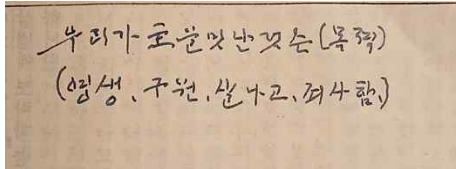 우리가 호을 맛난것은 (목적)
(영생, 구원, 살나고, 죄사함,)